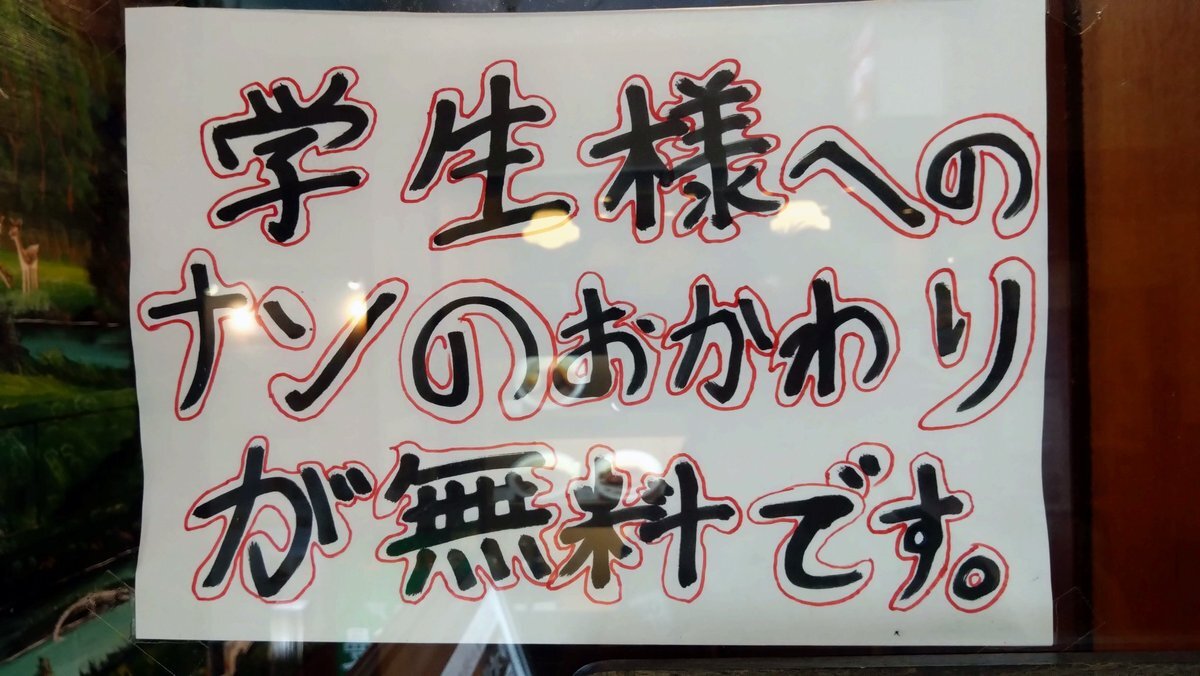 学生様への
ナンのおかわり
が無料です。